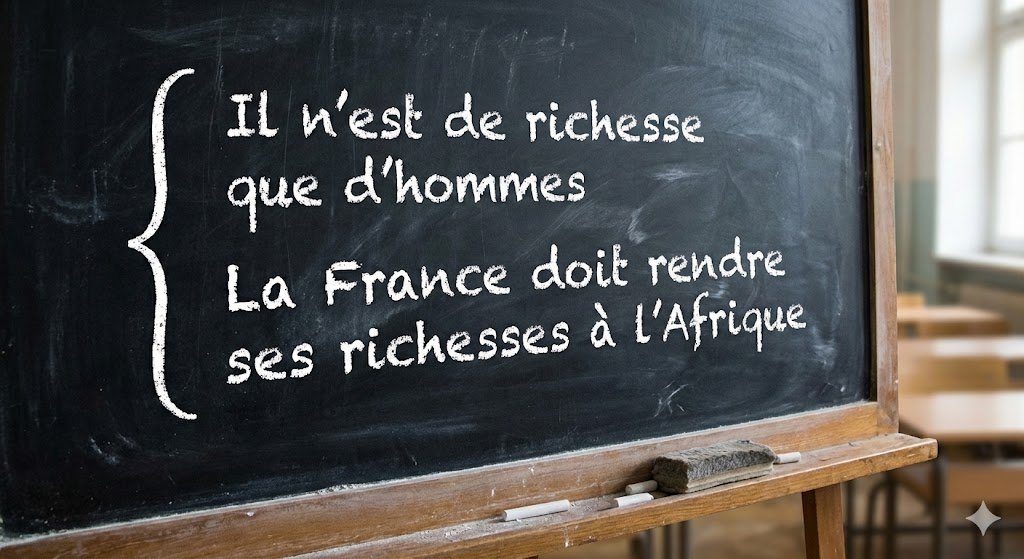 Il n'est de richesse
que d'hommes
La France doit rendre
ses richesses à l'Afrique